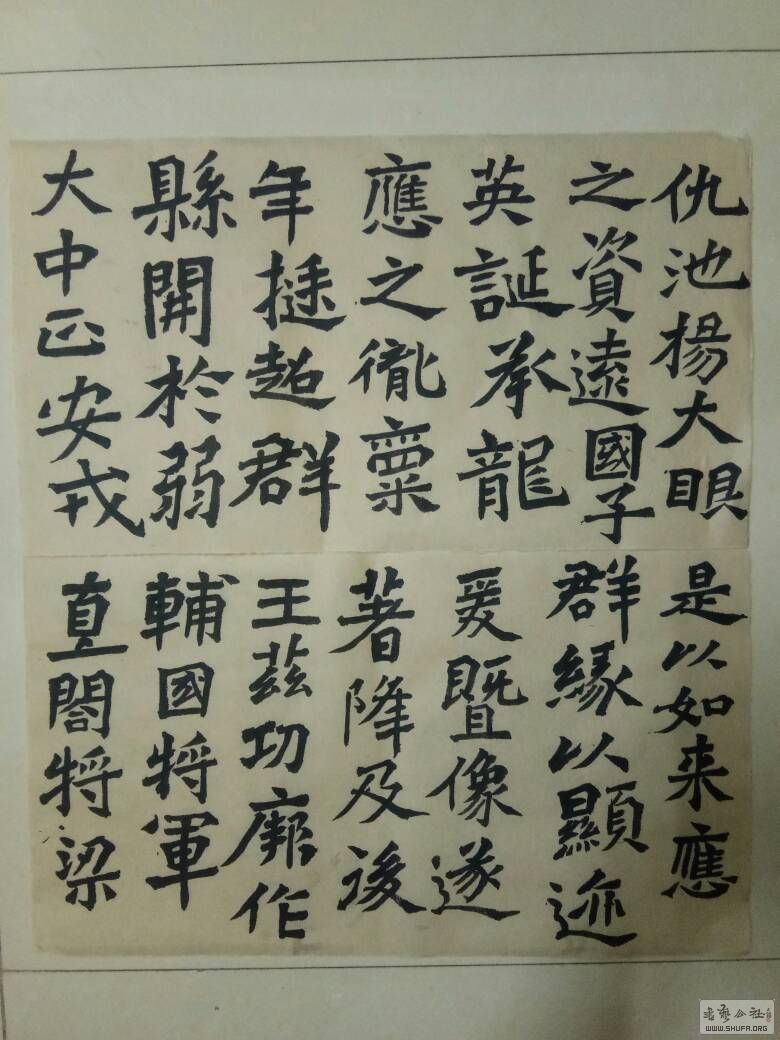 仇池楊大眼
之資遠國子
英誕承龍
應之胤稟
年挺超群
縣開於弱
大中正安戎
是以如来應
群緣以顯迹
爰暨像遂
著降及後
王茲功厥作
輔國將軍
直閤將梁
WWW.SHUFA.ORG